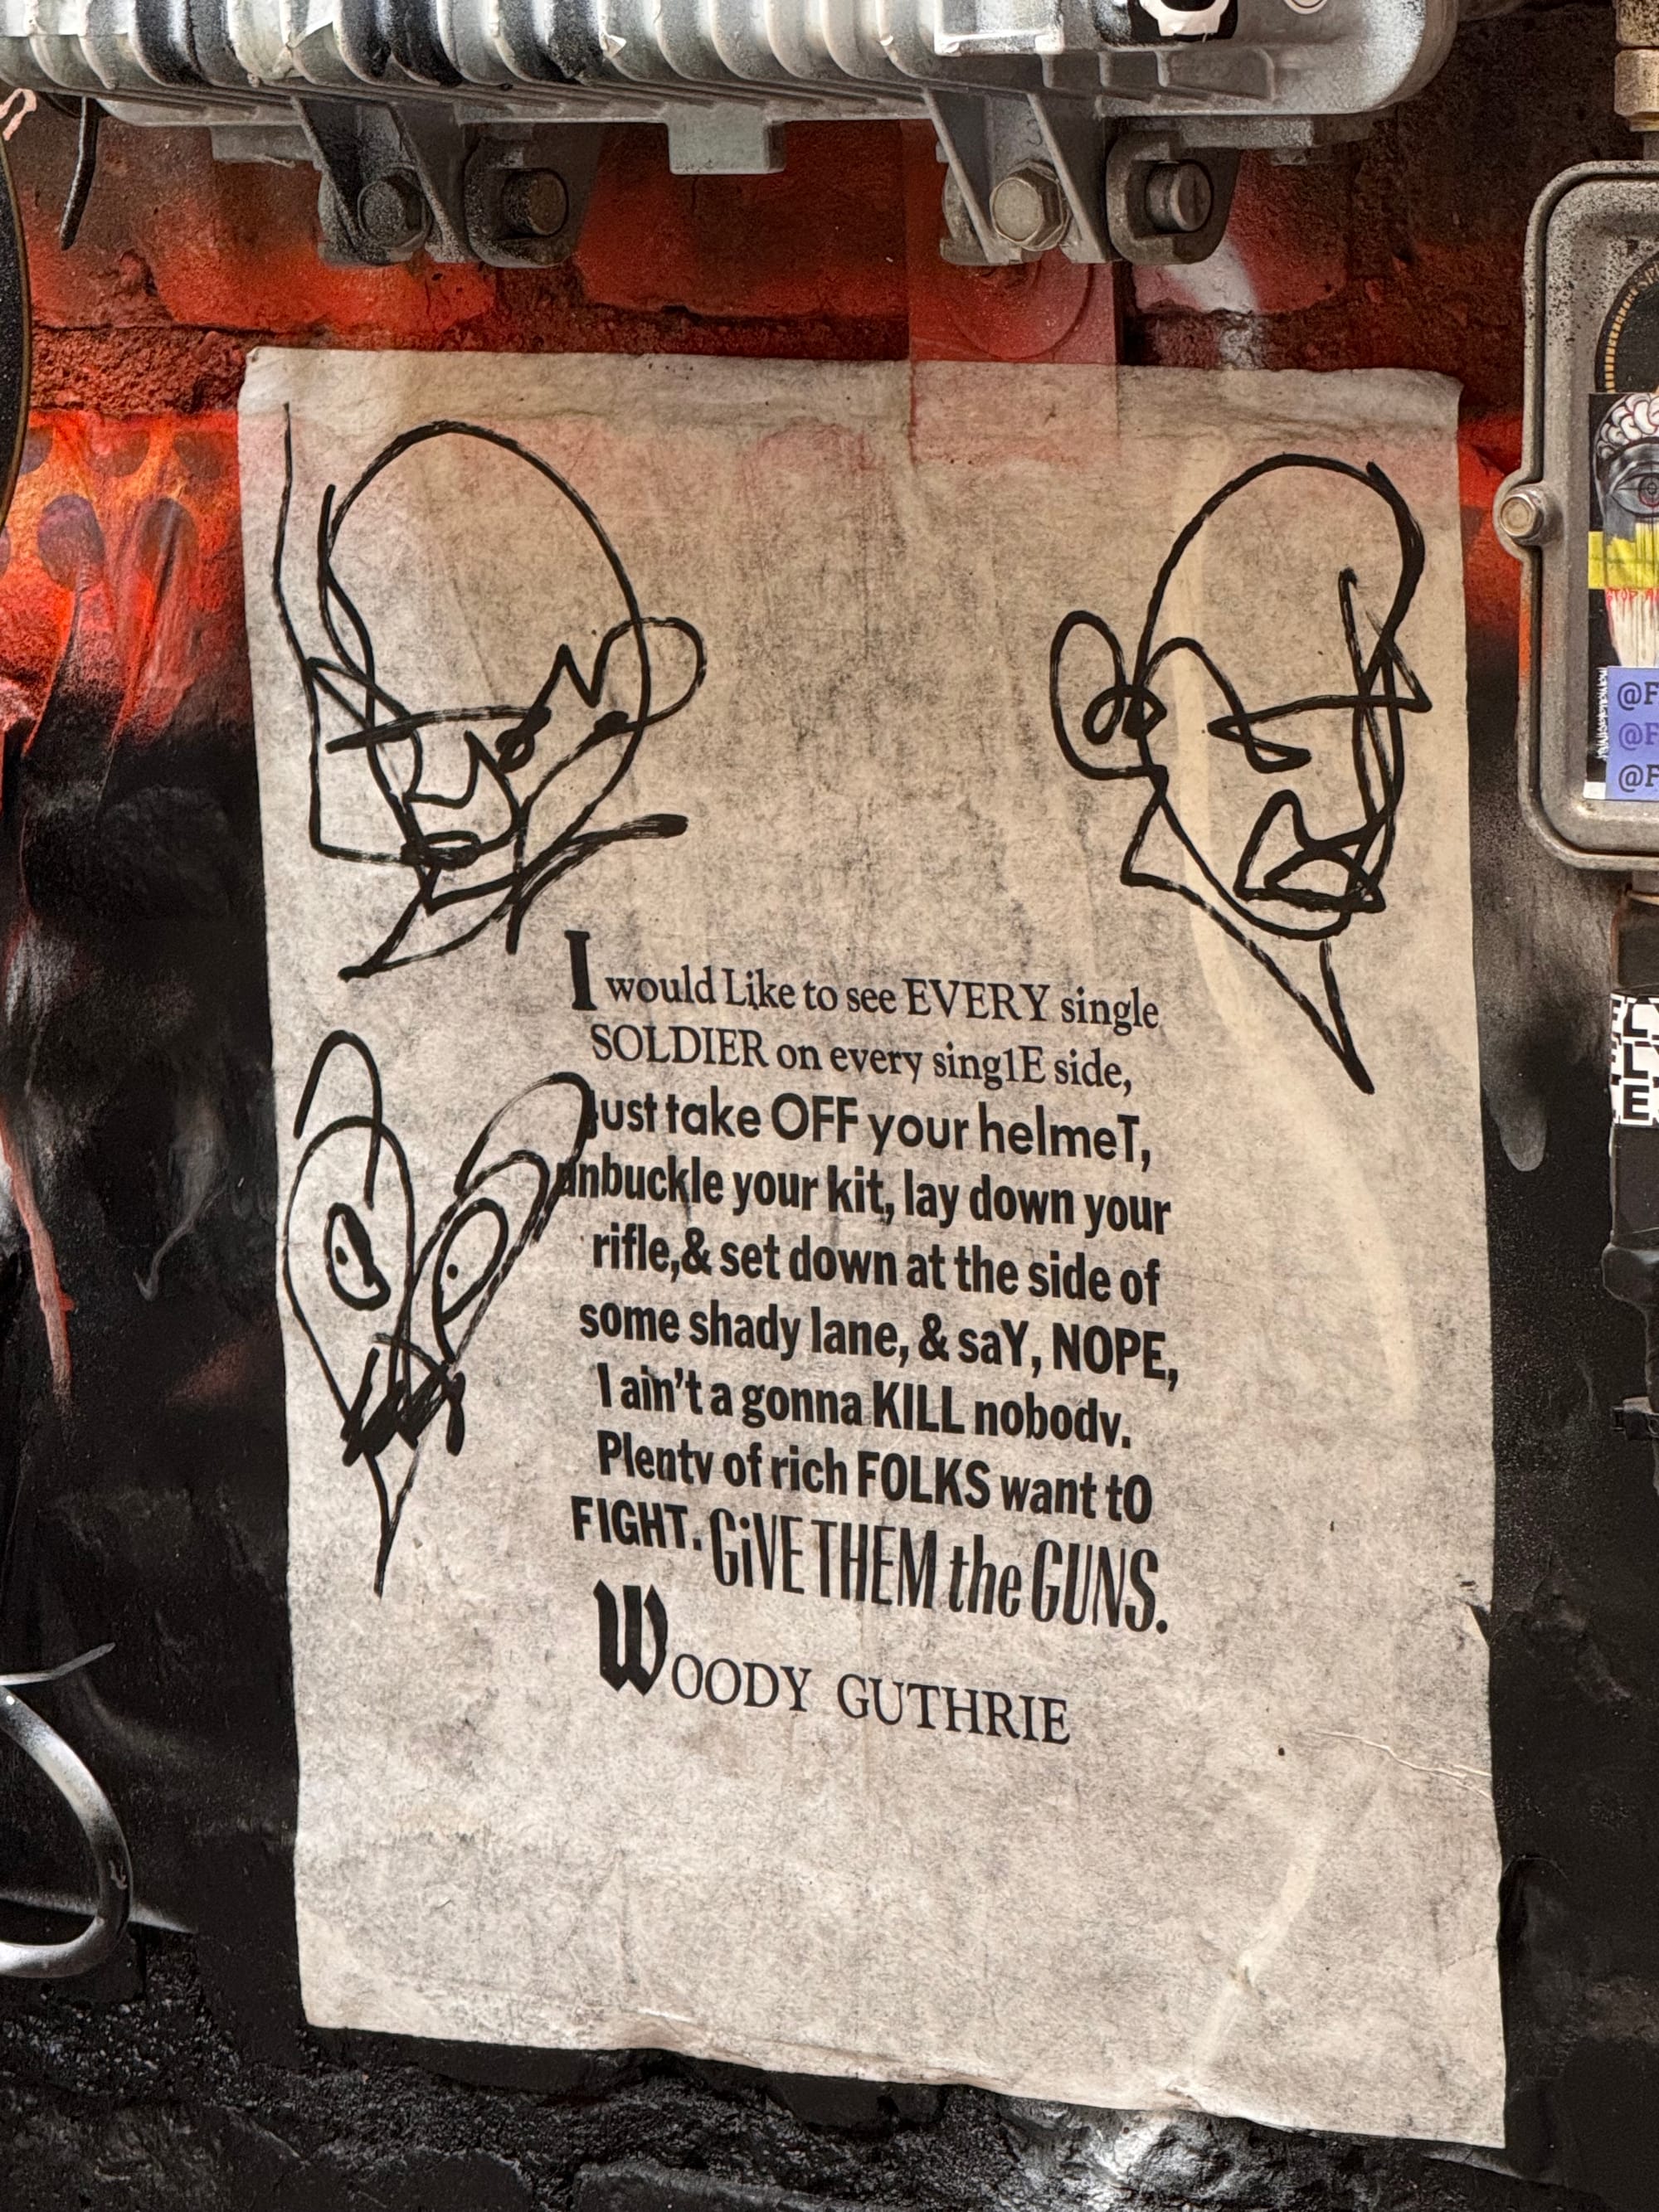 I would Like to see EVERY single
SOLDIER on every sing1E side,
Just take OFF your helmeT,
unbuckle your kit, lay down your
rifle,& set down at the side of
some shady lane, & saY, NOPE,
I ain't a gonna KILL nobodv.
Plentv of rich FOLKS want tO
FIGHT. GiVE THEM the GUNS.
WOODY GUTHRIE
@F
@F
@F